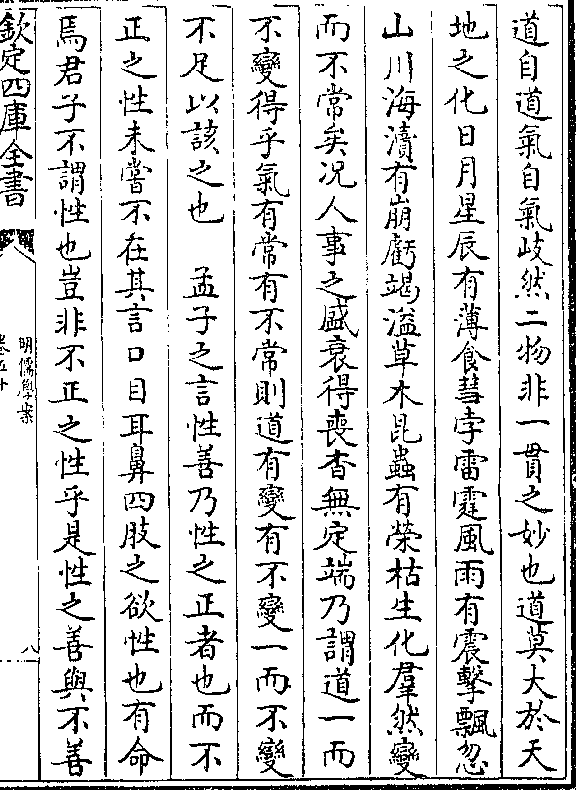 道自道氣自氣歧然二物非一貫之妙也道莫大於天
地之化日月星辰有薄食彗孛雷霆風雨有震擊飄忽
山川海瀆有崩虧竭溢草木昆蟲有榮枯生化羣然變
而不常矣况人事之盛衰得喪杳無定端乃謂道一而
不變得乎氣有常有不常則道有變有不變一而不變
不足以該之也　孟子之言性善乃性之正者也而不
正之性未嘗不在其言口目耳鼻四肢之欲性也有命
焉君子不謂性也豈非不正之性乎是性之善與不善
欽定四庫全書
明儒學案
卷五十
八